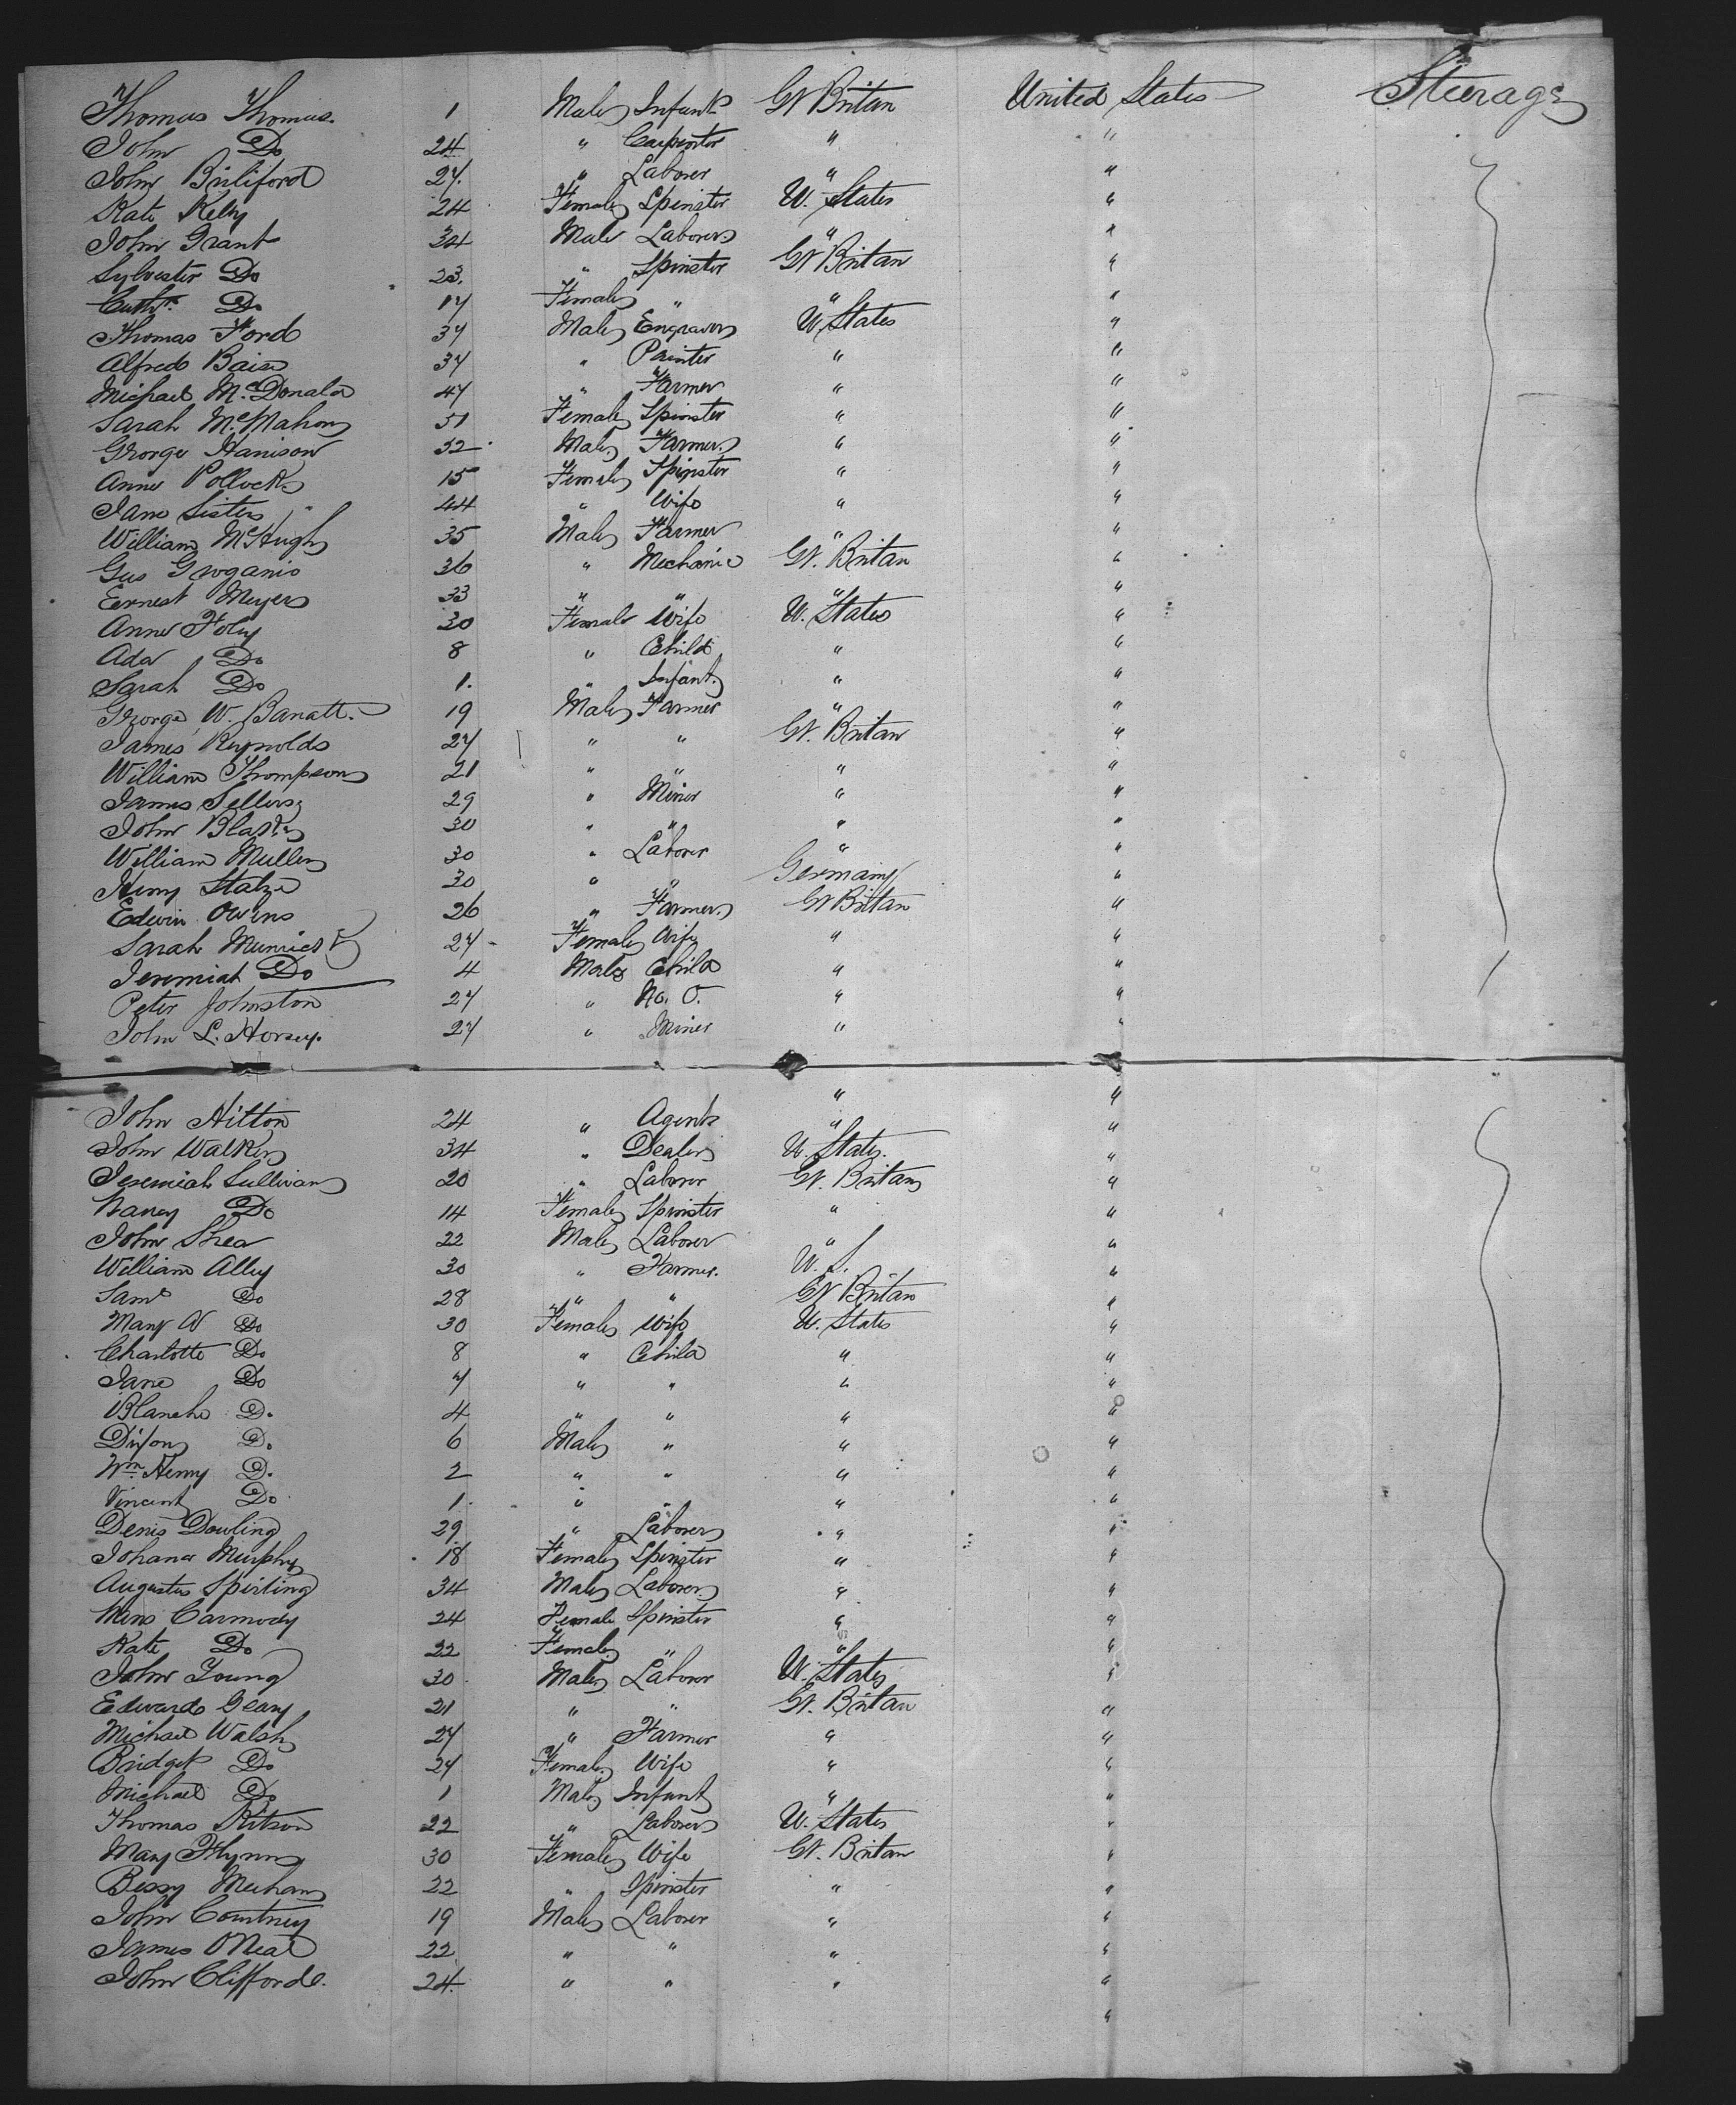 Thomas Thomas. 1 Male Infant Gt Britan United States Steerage
John Do 24 " Carpenter " "
John Briliford 27. " Laborer " "
Kate Kelly 24 Female Spinster U. States "
John Grant 34 Male Laborer " "
Sylvester Do 23. " Spinster Gt Britan "
Cath. Do 17 Female " " "
Thomas Ford 37 Male Engraver U. States "
Alfred Baise 37 " Painter " "
Michael McDonald 47 " Farmer " "
Sarah McMahon 51 Female Spinster " "
George Harrison 32 Male Farmer " "
Anne Pollock 15 Female Spinster " "
Jane Sisters 44 " Wife " "
William McHugh 35 Male Farmer " "
Gus Groganis 36 " Mechanic Gt. Britan "
Earnest Meyers 33 " " " "
Anne Foley 30 Female Wife U. States "
Ada Do 8 " Child " "
Sarah Do 1. " Infant " "
George W. Barratt. 19 Male Farmer " "
James Reynolds 27 " " Gt. Britan "
William Thompson 21 " " " "
James Sellers 29 " Miner " "
John Blake 30 " " " "
William Mullen 30 " Laborer " "
Henry Stalze 30 " " Germany "
Edwin Owens 26 " Farmer Gt Britan "
Sarah 27 Female Wife " "
Jeremiah Do 4 Male Child " "
Peter Johnston 27 " No. O. " "
John L. Horsey. 27 " Miner " "
" "
John Hilton 24 " Agent " "
John Walker 34 " Dealer U. States. "
Jeremiah Sullivan 20 " Laborer Gt. Britan "
Nancy Do 14 Female Spinster " "
John Shea 22 Male Laborer " "
William Alley 30 " Farmer. U. S. "
Saml Do 28 " " Gt Britan "
Mary A Do 30 Female Wife U. States "
Charlotte Do 8 " Child " "
Jane Do 7 " " " "
Blanche Do 4 " " " "
Dixon Do 6 Male " " "
Wm Henry Do 2 " " " "
Vincent Do 1. " " " "
Denis Dowling 29 " Laborer " "
Johana Murphy 18 Female Spinster " "
Augustus Spirling 34 Male Laborer " "
Carmody 24 Female Spinster " "
Kate Do 22 Female " " "
John Young 30 Male Laborer U. States "
Edward Geary 21 " " Gt. Britan "
Michael Walsh 27 " Farmer " "
Bridget Do 27 Female Wife " "
Michael Do 1 Male Infant " "
Thomas Kitson 22 " Laborer U. States "
Mary Flynn 30 Female Wife Gt. Britan "
Bessy Meehan 22 " Spinster " "
John Courtney 19 Male Laborer " "
James ONeal 22 " " " "
John Clifford. 24. " " " "
"